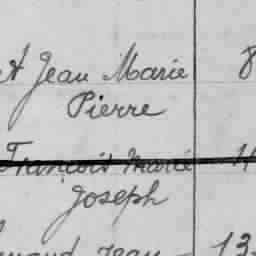 Jean Marie 8
Pierre
François Marie
Joseph
Jean 13